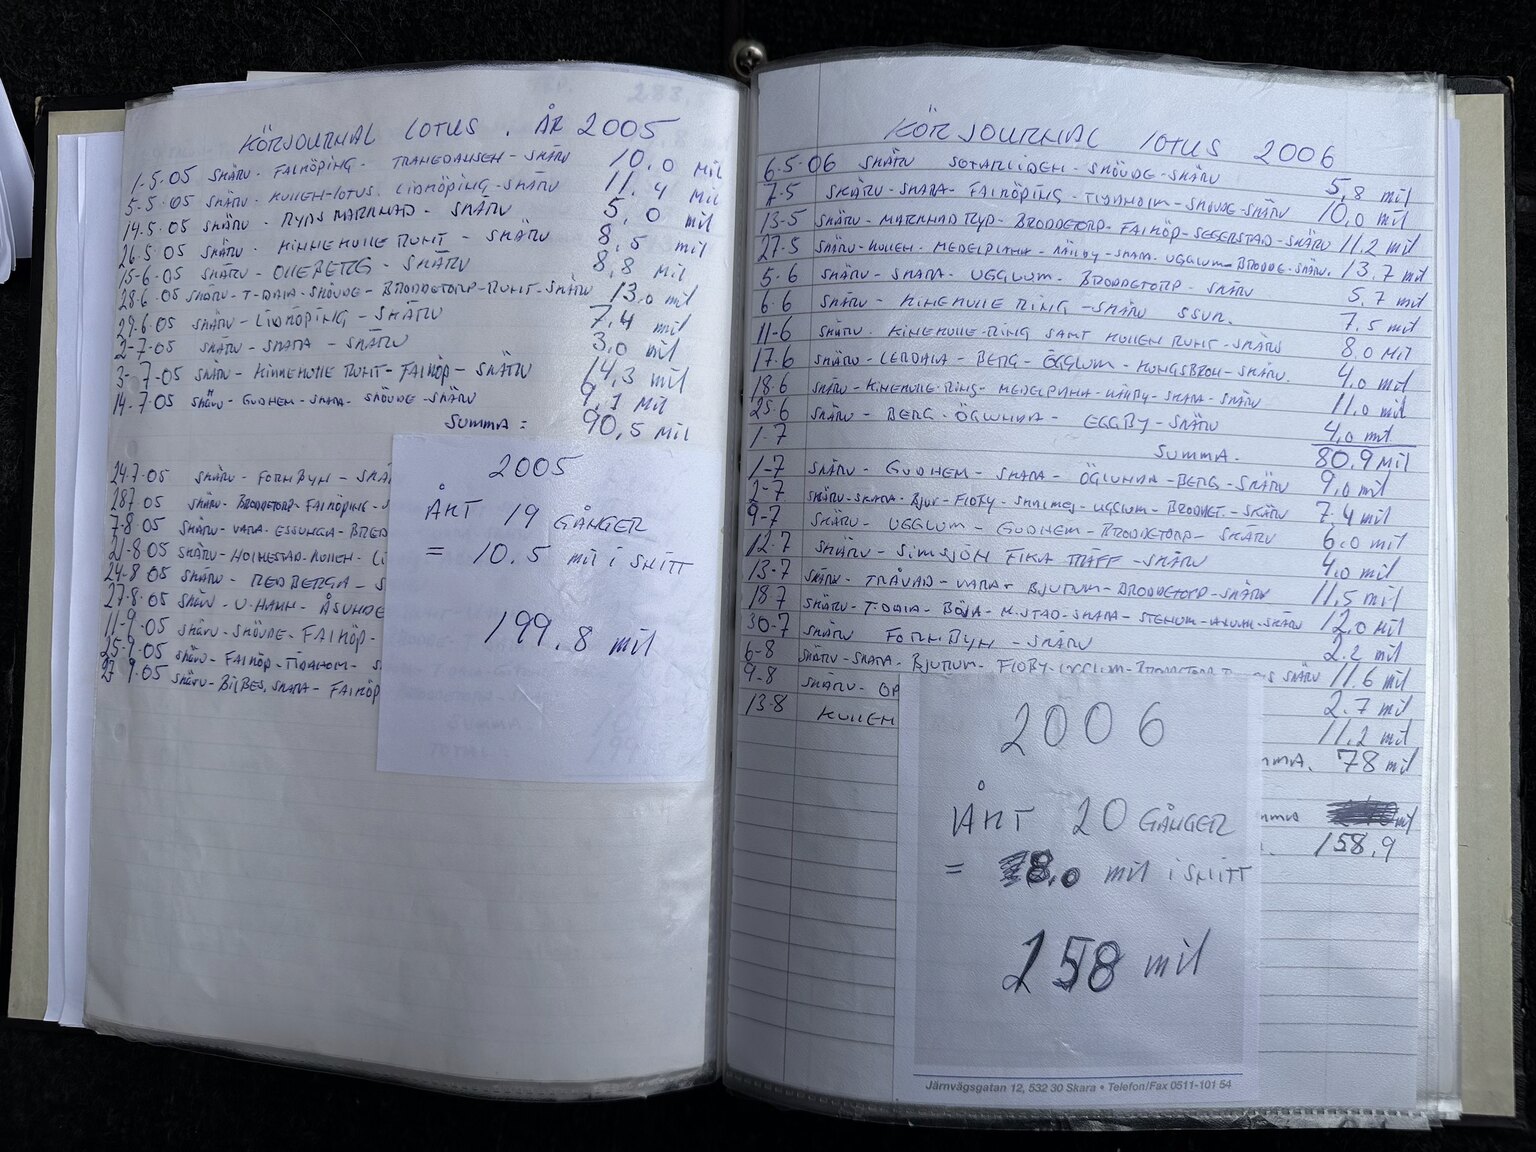 KÖRJOURNAL LOTUS. ÅR 2005
1-5.05 SKÄRV - FALKÖPING - TRANEDANSEN - SKÄRV 10.0 mil
5-5.05 SKÄRV - KULLEN-LOTUS. LIDKÖPING - SKÄRV 11.4 mil
14.5.05 SKÄRV - RYDS MARKNAD - SKÄRV 5,0 mil
26.5.05 SKÄRV - KINNEKULLE RUNT - SKÄRV 8,5 mil
15-6.05 SKÄRV - OLLEBERG - SKÄRV 8,8 mil
28.6.05 SKÄRV - T-DALA - SKÖVDE - BRODDETORP - RUNT - SKÄRV 13,0 mil
29.6.05 SKÄRV - LIDKÖPING - SKÄRV 7,4 mil
2-7-05 SKÄRV - SKARA - SKÄRV 3,0 mil
3-7-05 SKÄRV - KINNEKULLE RUNT - FALKÖP - SKÄRV 14,3 mil
14.7.05 SKÄRV - GUDHEM - SKARA - SKÖVDE - SKÄRV 9,1 mil
SUMMA: 90,5 mil
24.7.05 SKÄRV - FORNBYN - SKÄ
287 05 SKÄRV - BRODDETORP - FALKÖPING - S
7-8.05 SKÄRV - VARA - ESSUNGA - BRED
21-8.05 SKÄRV - HOLMESTAD - KULLEN - LI
24-8 05 SKÄRV - REDBERGA - S
27-8.05 SKÄRV - U.HAMN - ÅSUNDE
11-9.05 SKÄRV - SKÖVDE - FALKÖP -
25-9.05 SKÄRV - FALKÖP - TIDAHOLM - S
27 9.05 SKÄRV - BILBES, SKARA - FALKÖP
2005
ÅKT 19 GÅNGER
= 10.5 mil i SNITT
199.8 mil
KÖRJOURNAL LOTUS 2006
6.5.06 SKÄRV SOTARLIDEN - SKÖVDE - SKÄRV 5,8 mil
7.5 SKÄRV - SKARA - FALKÖPING - TIDAHOLM - SKÖVDE - SKÄRV 10,0 mil
13-5 SKÄRV - MARKNAD RYD - BRODDETORP - FALKÖP - SEGERSTAD - SKÄRV 11.2 mil
27.5 SKÄRV - KULLEN - MEDELPLANA - KÄLLBY - SKARA - UGGLUM - BRODDE - SKÄRV. 13.7 mil
5.6 SKÄRV - SKARA - UGGLUM - BRODDETORP - SKÄRV 5,7 mil
6.6 SKÄRV - KINEKULLE RING - SKÄRV SSVR. 7,5 mil
11-6 SKÄRV. KINEKULLE-RING SAMT KULLEN RUNT - SKÄRV 8.0 mil
17.6 SKÄRV - LERDALA - BERG - ÖGGLUM - KUNGSBROH - SKÄRV. 4.0 mil
18.6 SKÄRV - KINEKULLE-RING - MEDELPLANA - KÄLLBY - SKARA - SKÄRV 11.0 mil
25.6 SKÄRV - BERG - ÖGLUNDA - EGGBY - SKÄRV 4,0 mil
1-7 SUMMA. 80.9 mil
1-7 SKÄRV - GUDHEM - SKARA - ÖGLUNDA - BERG - SKÄRV 9,0 mil
2-7 SKÄRV - SKARA - BJUR - FLOBY - SKALMEJ - UGGLUM - BRODDET. - SKÄRV 7.4 mil
9-7 SKÄRV - UGGLUM - GUDHEM - BRODDETORP - SKÄRV 6.0 mil
12.7 SKÄRV - SIMSJÖN FIKA TRÄFF - SKÄRV 4.0 mil
13-7 SKÄRV - TRÅVAD - VARA - BJURUM - BRODDETORP - SKÄRV 11,5 mil
18 7 SKÄRV - T.DALA - BÖJA - M.STAD - SKARA - STENUM - AXVALL - SKÄRV 12.0 mil
30-7 SKÄRV FORNBYN - SKÄRV 2.2 mil
6-8 SKÄRV - SKARA - BJURUM - FLOBY - UGGLUM - BRODDETORP SKÄRV 11.6 mil
9-8 SKÄRV - 2.7 mil
13-8 KULLEN 11.2 mil
MMA. 78 mil
MMA mil
158,9
2006
ÅKT 20 GÅNGER
= 8.0 mil i SNITT
158 mil
Järnvägsgatan 12, 532 30 Skara • Telefon/Fax 0511-101 54